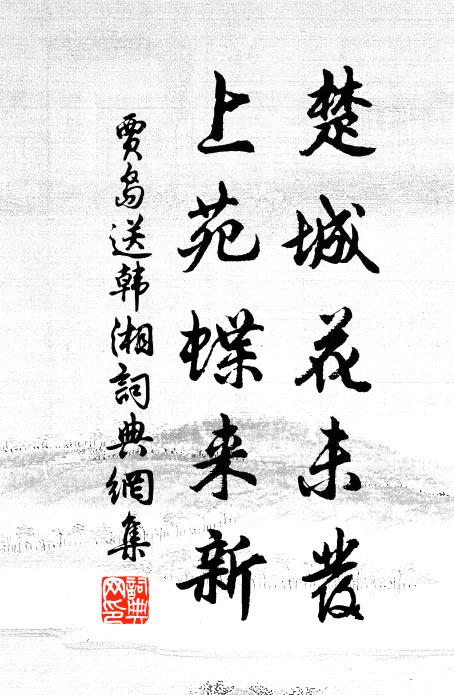 楚城花未發
上苑蝶来新
賈島送韩湘詞典網集
詞典网印